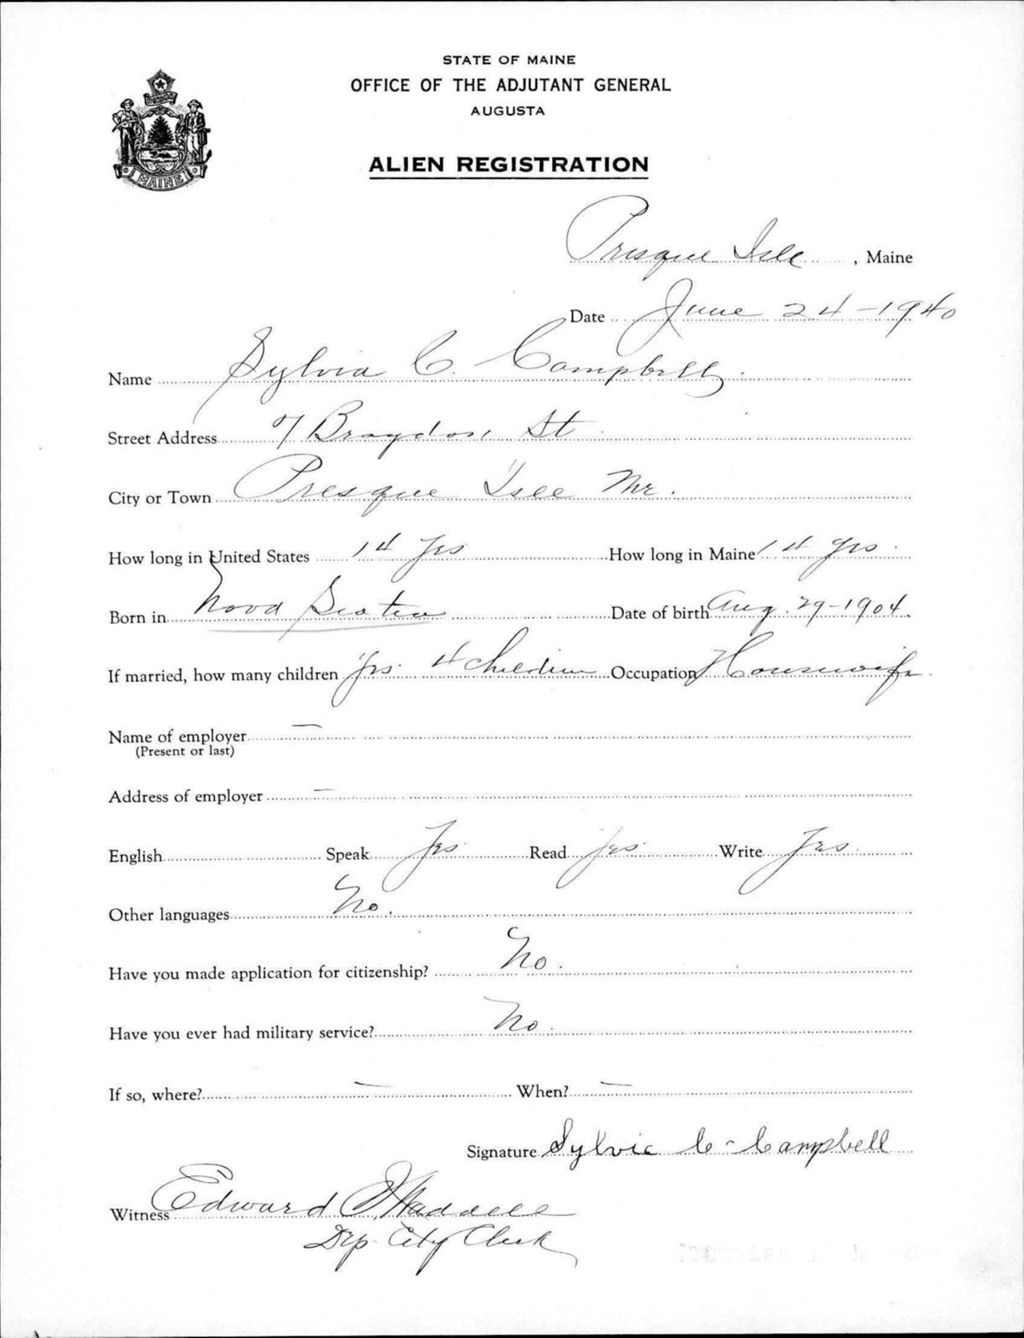 STATE OF MAINE
OFFICE OF THE ADJUTANT GENERAL
AUGUSTA
MAINE
ALIEN REGISTRATION
Presque Isle, Maine
Date June 24-1940
Name Sylvia C. Campbell
Street Address 7 Bragdon St
City or Town Presque Isle Me.
How long in United States 14 yrs How long in Maine 14 yrs.
Born in Nova Scotia Date of birth Aug. 29-1904
If married, how many children Yes. 4 children Occupation Housewife.
Name of employer —
(Present or last)
Address of employer —
English Speak Yes Read Yes Write Yes
Other languages No.
Have you made application for citizenship? No.
Have you ever had military service? No.
If so, where? — When? —
Signature Sylvia C - Campbell
Witness Edward Waddell
Dep City Clerk